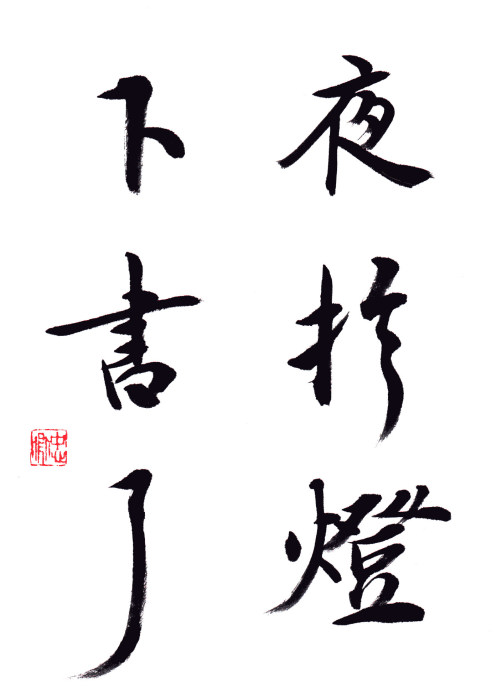 夜於燈
下書了